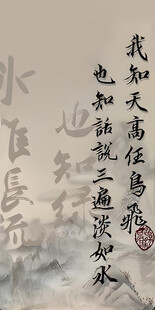 我知天高任鳥飛
也知話說三遍淡如水
也知行
水唯長流